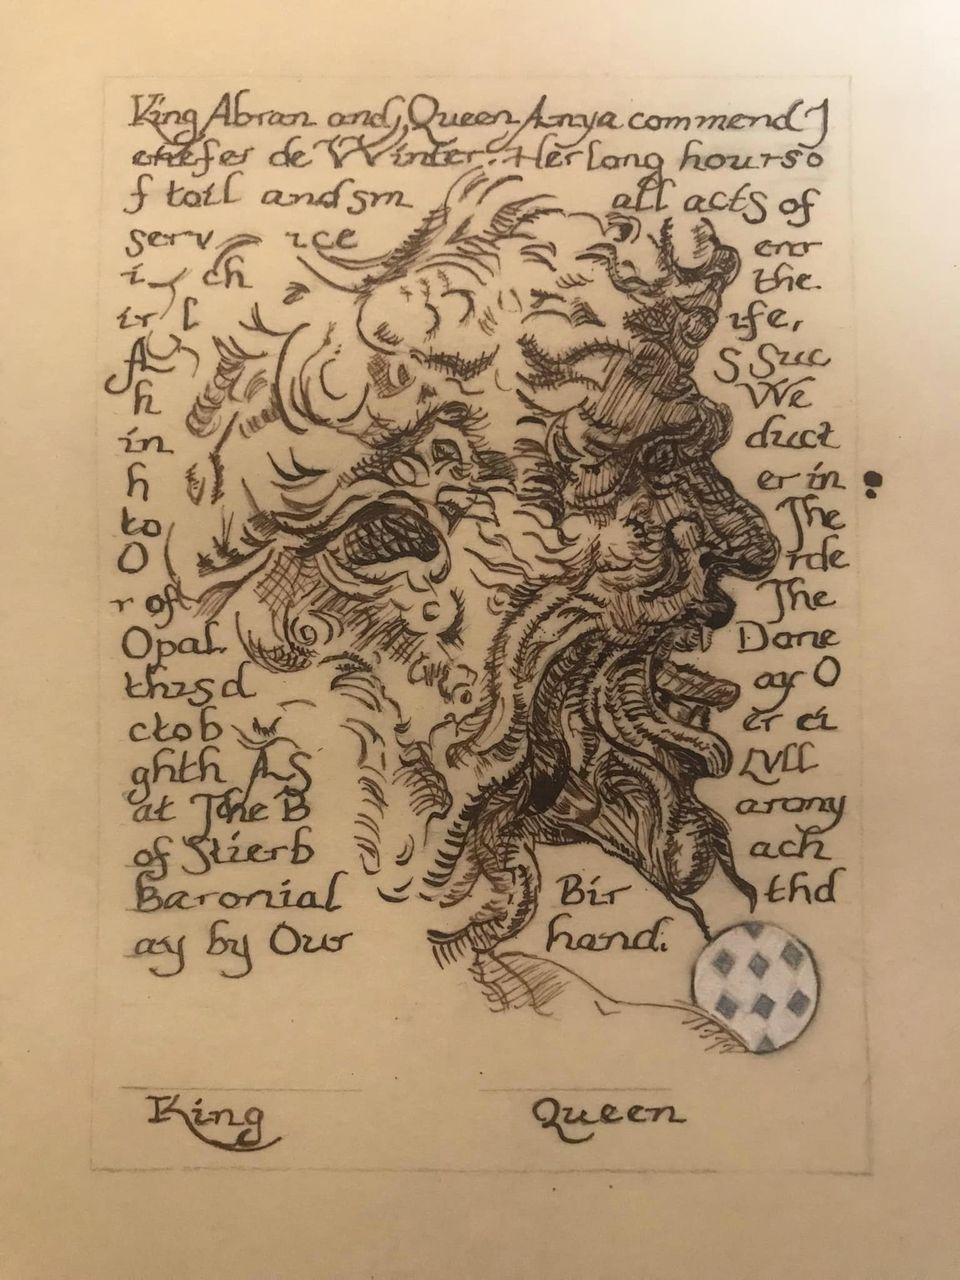 King Abran and Queen Anya commend J
enefer de Winter. Her long hours o
f toil and sm all acts of
serv ice err
i ch the
ir l ife,
A S Suc
h We
in duct
h er in
to The
O rde
r of The
Opal. Done
this d ay O
ctob er ei
ghth AS LVII
at The B arony
of Stierb ach
Baronial Bir thd
ay by Our hand.
King Queen